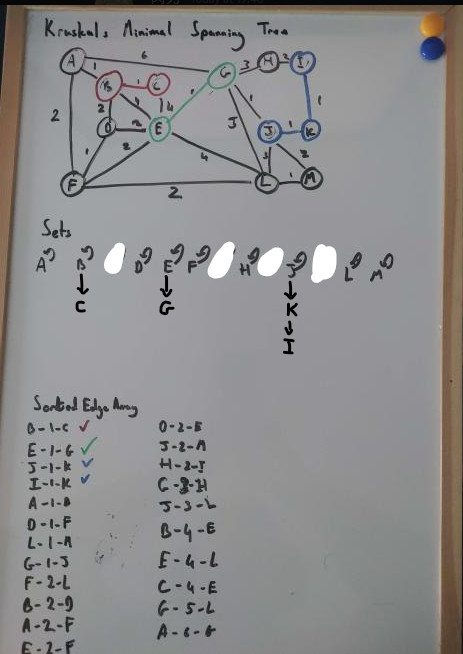 Kruskals Minimal Spanning Tree
A 6
1 B 1 C G 3 H 2 I
2 2 4 1 1
D 2 E J 1 K
1 2 4 3 2
F 2 L 1 M
Sets
A B D E F H J L M
C G K
I
Sorted Edge Array
B-1-C ✓
E-1-G ✓
J-1-K ✓
I-1-K ✓
A-1-B
D-1-F
L-1-M
G-1-J
F-2-L
B-2-D
A-2-F
E-2-F
D-2-E
J-2-M
H-2-I
G-3-H
J-3-L
B-4-E
E-4-L
C-4-E
G-5-L
A-6-G